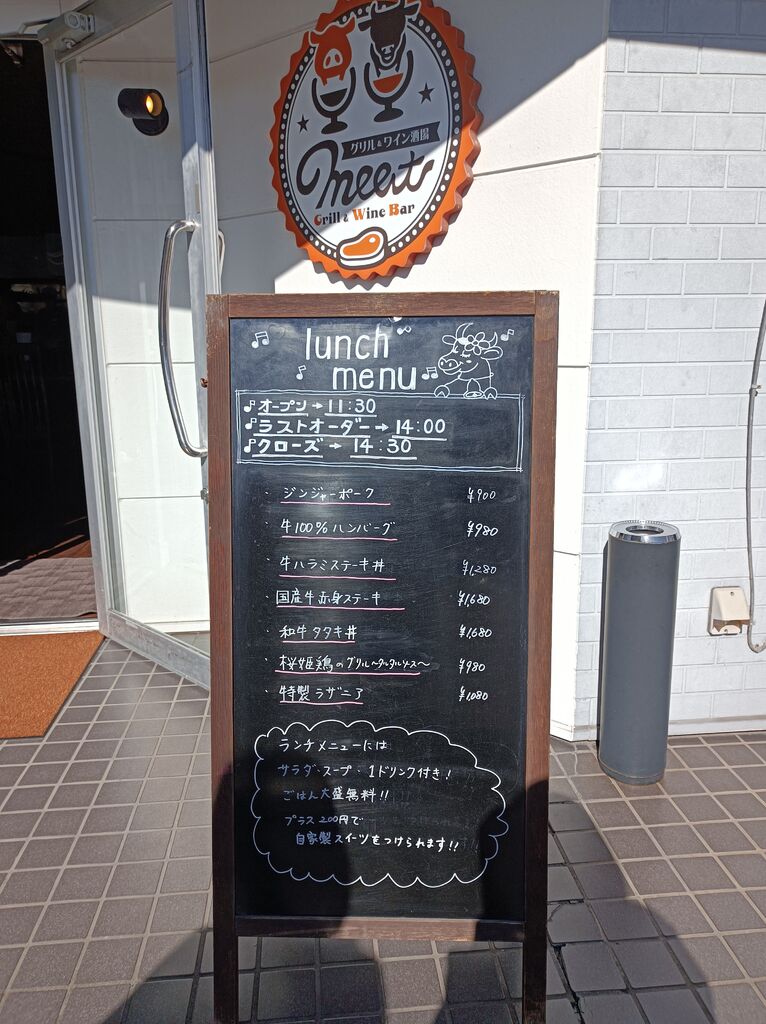 グリル&ワイン酒場
meat
Grill & Wine Bar
lunch
menu
オープン→11:30
ラストオーダー→14:00
クローズ→14:30
・ジンジャーポーク ¥900
・牛100%ハンバーグ ¥980
・牛ハラミステーキ丼 ¥1,280
・国産牛赤身ステーキ ¥1,680
・和牛タタキ丼 ¥1,680
・桜姫鶏のグリル〜タルタルソース〜 ¥980
・特製ラザニア ¥1,080
ランチメニューには
サラダ・スープ・1ドリンク付き!
ごはん大盛無料!!
プラス200円で
自家製スイーツをつけられます!!